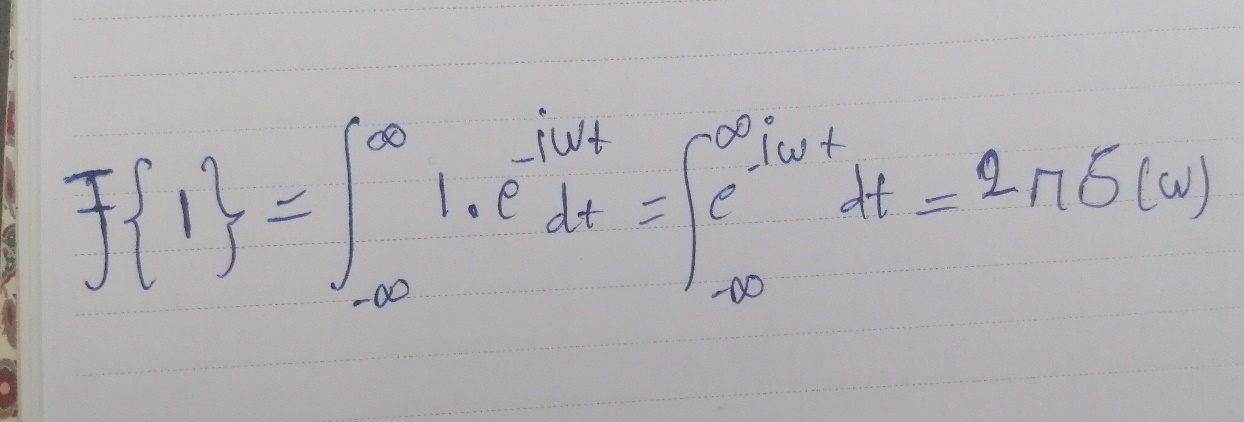 F{1} = ∫_{-∞}^{∞} 1.e^{-iωt} dt = ∫_{-∞}^{∞} e^{-iωt} dt = 2πδ(ω)